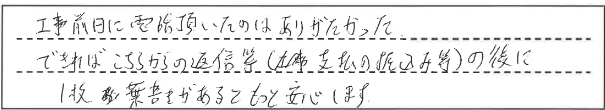 工事前日に電話頂いたのはありがたかった
できればこちらからの返信等(工事支払の振込み等)の後に
1枚葉書きがあるともっと安心します